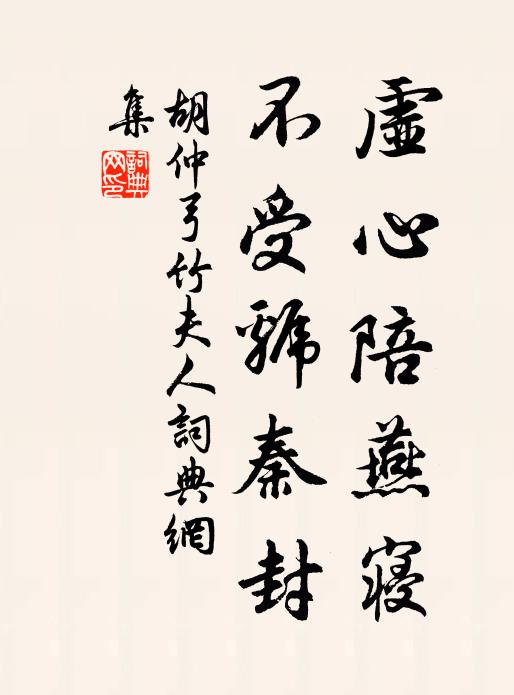 虛心陪燕寢
不受虢秦封
胡仲弓竹夫人詞典網
集
詞典网印